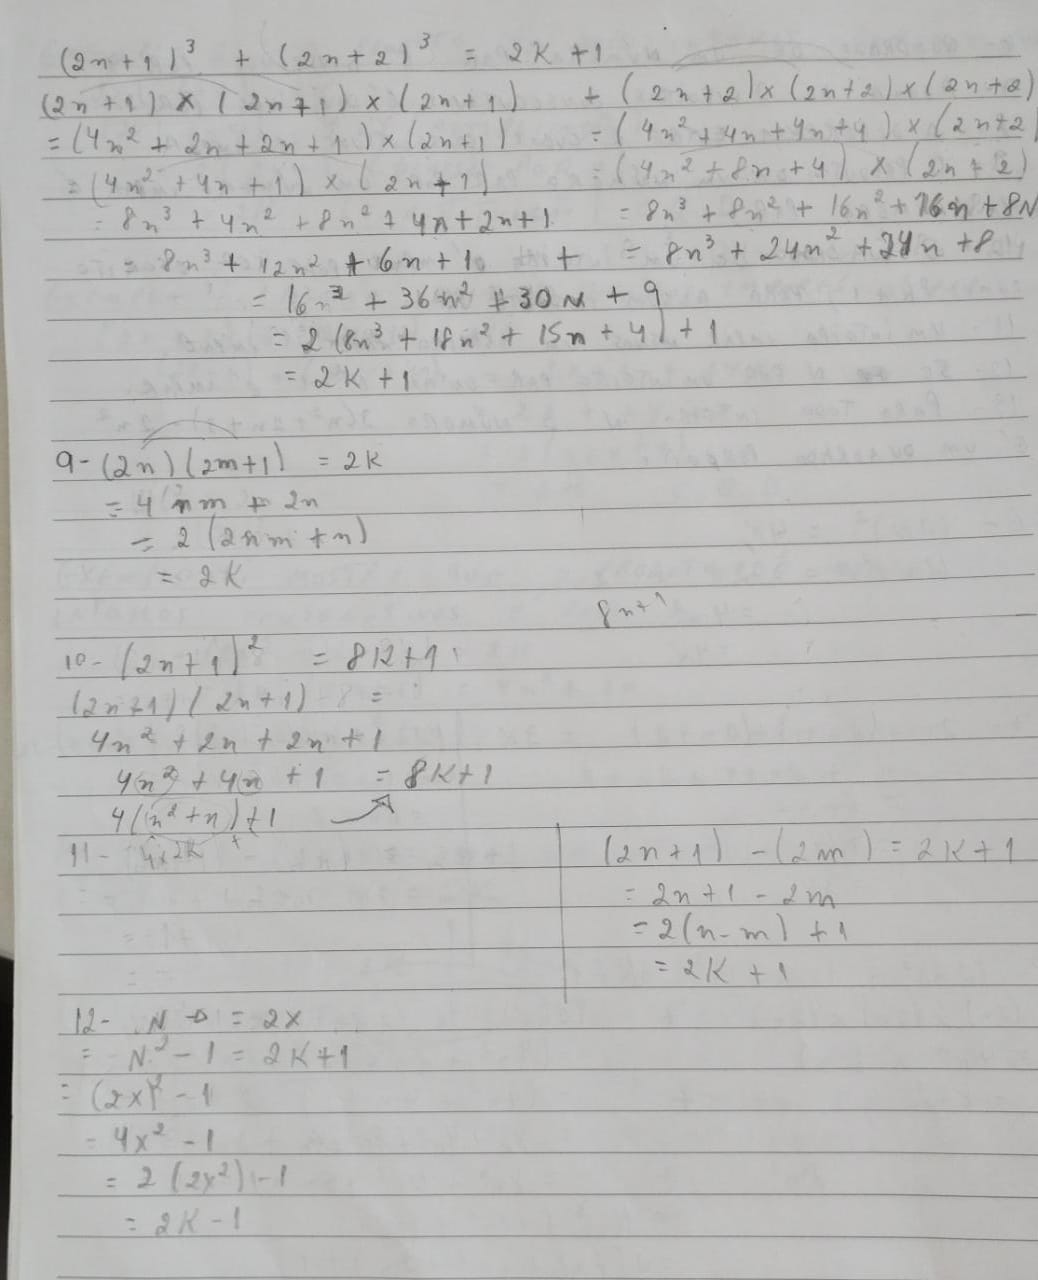 (2n+1)³ + (2n+2)³ = 2K+1
(2n+1) × (2n+1) × (2n+1) + (2n+2) × (2n+2) × (2n+2)
= (4n² + 2n + 2n + 1) × (2n+1) = (4n² + 4n + 4n + 4) × (2n+2
= (4n² + 4n + 1) × (2n+1) = (4n² + 8n + 4) × (2n+2)
= 8n³ + 4n² + 8n² + 4n + 2n + 1 = 8n³ + 8n² + 16n² + 16n + 8N
= 8n³ + 12n² + 6n + 1 + = 8n³ + 24n² + 24n + 8
= 16n³ + 36n² + 30N + 9
= 2(8n³ + 18n² + 15n + 4) + 1
= 2K+1
9- (2n)(2m+1) = 2K
= 4nm + 2n
= 2(2nm + n)
= 2K
8n+1
10- (2n+1)² = 8K+1
(2n+1)(2n+1) =
4n² + 2n + 2n + 1
4n² + 4n + 1 = 8K+1
4(n² + n) + 1
11- 4×2K +
(2n+1) - (2m) = 2K+1
= 2n+1 - 2m
= 2(n-m) + 1
= 2K + 1
12- N → = 2x
= N² - 1 = 2K+1
= (2x)² - 1
= 4x² - 1
= 2(2x²) - 1
= 2K - 1